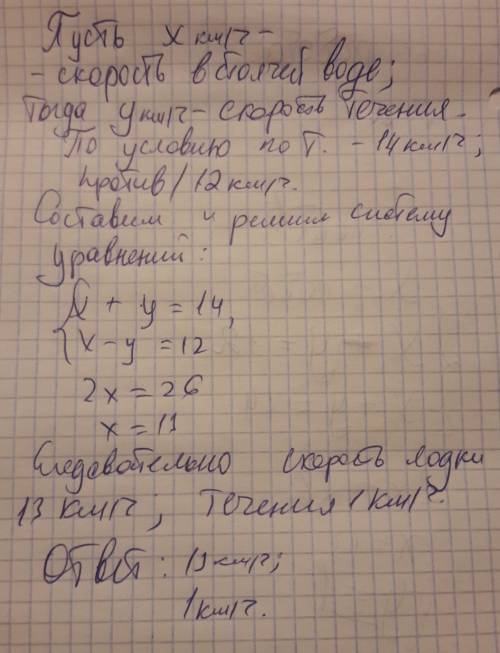 Пусть х км/ч -
- скорость в стоячей воде;
тогда у км/ч - скорость течения.
По условию по т. - 14 км/ч;
против / 12 км/ч.
Составим и решим систему
уравнений:
{ х + у = 14,
х - у = 12
2х = 26
х = 13
Следовательно скорость лодки
13 км/ч, течения 1 км/ч.
Ответ: 13 км/ч;
1 км/ч.